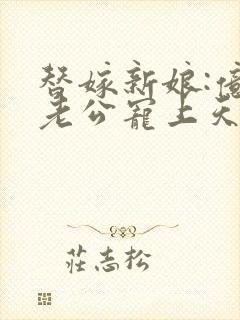 替嫁新娘:億
老公寵上天
莊志松